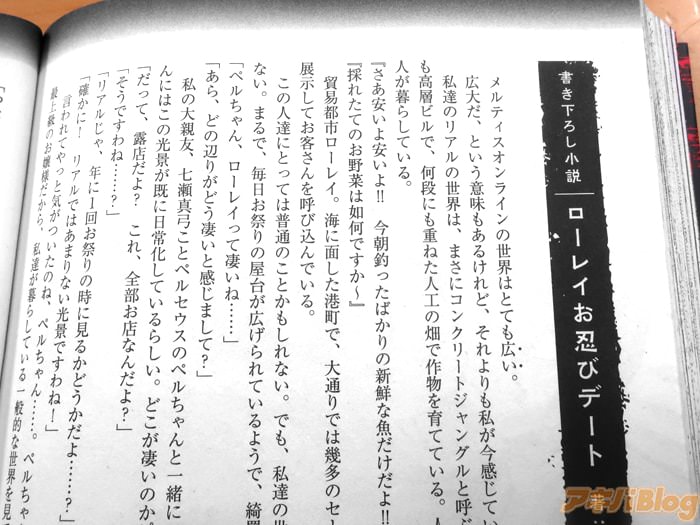 書き下ろし小説 ローレイお忍びデート 著
メルティスオンラインの世界はとても広い。
広大だ、という意味もあるけれど、それよりも私が今感じてい
私達のリアルの世界は、まさにコンクリートジャングルと呼び
も高層ビルで、何段にも重ねた人工の畑で作物を育てている。人
人が暮らしている。
『さあ安いよ安いよ!! 今朝釣ったばかりの新鮮な魚だけだよ!!
『採れたてのお野菜は如何ですか〜』
貿易都市ローレイ。海に面した港町で、大通りでは幾多のセー
展示してお客さんを呼び込んでいる。
この人達にとっては普通のことかもしれない。でも、私達の世
ない。まるで、毎日お祭りの屋台が広げられているようで、綺麗
「ペルちゃん、ローレイって凄いね……」
「あら、どの辺りがどう凄いと感じまして？」
私の大親友、七瀬真弓ことペルセウスのペルちゃんと一緒に
んにはこの光景が既に日常化しているらしい。どこが凄いのか。
「だって、露店だよ？ これ、全部お店なんだよ？」
「そうですわね……？」
「リアルじゃ、年に１回お祭りの時に見るかどうかだよ……？」
「確かに！ リアルではあまりない光景ですわね！」
言われてやっと気がついたのね、ペルちゃん……。ペルちゃ
最上級のお嬢様だから、私達が暮らしている一般的な世界を見
アキバBlog